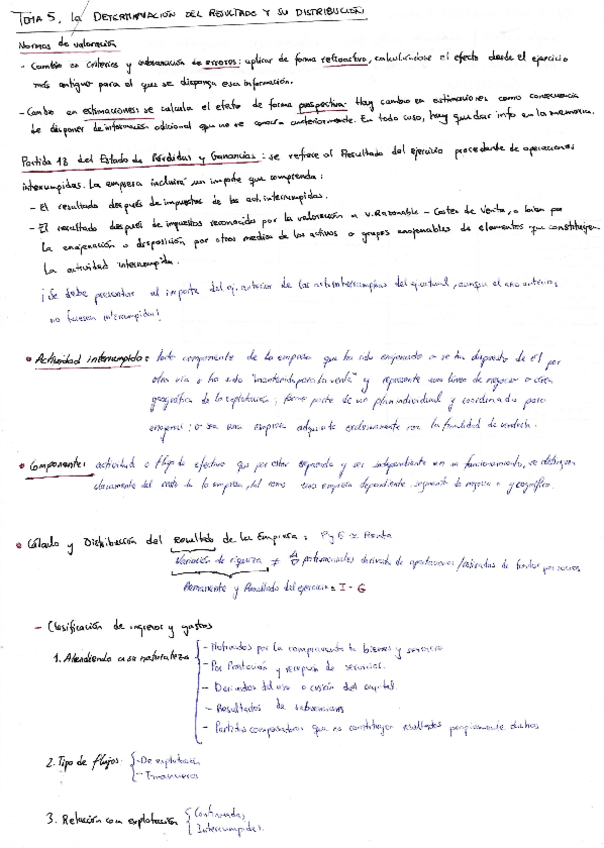 TEMA 5. La DETERMINACIÓN DEL RESULTADO Y SU DISTRIBUCIÓN
Normas de valoración
- Cambio en criterios y subsanación de errores: aplicar de forma retroactiva, calculándose el efecto desde el ejercicio
más antiguo para el que se disponga esa información.
- Cambio en estimaciones: se calcula el efecto de forma prospectiva. Hay cambio en estimaciones como consecuencia
de disponer de información adicional que no se conocía anteriormente. En todo caso, hay que dar info en la memoria.
Partida 18 del Estado de Pérdidas y Ganancias: se refiere al Resultado del ejercicio procedente de operaciones
interrumpidas. La empresa incluirá un importe que comprenda:
- El resultado después de impuestos de las act. interrumpidas.
- El resultado después de impuestos reconocido por la valoración a v. Razonable - Costes de Venta, o bien por
la enajenación o disposición por otros medios de los activos o grupos enajenables de elementos que constituyen
la actividad interrumpida.
¡Se debe presentar el importe del ej. anterior de las act. interrumpidas del ej. actual, aunque el año anterior
no fuesen interrumpidas!
• Actividad interrumpida: todo componente de la empresa que ha sido enajenado o se ha dispuesto de él por
otra vía o ha sido "mantenido para la venta" y represente una línea de negocio o área
geográfica de la explotación; forme parte de un plan individual y coordinado para
enajenar; o sea una empresa adquirida exclusivamente con la finalidad de venderla.
• Componente: actividad o flujo de efectivo que por estar separado y ser independiente en su funcionamiento, se distinguen
claramente del resto de la empresa, tal como una empresa dependiente, segmento de negocio o geográfico.
• Cálculo y Distribución del Resultado de la Empresa: PyG ≃ Renta
Variación de riqueza ≠ patrimoniales derivada de aportaciones / retiradas de fondos por socios
Permanente y Resultado del ejercicio = I - G
- Clasificación de ingresos y gastos
1. Atendiendo a su naturaleza
- Motivados por la compraventa de bienes y servicios
- Por Prestación y recepción de servicios.
- Derivados del uso o cesión del capital.
- Resultados de subvenciones
- Partidas compensadoras que no constituyen resultados propiamente dichos
2. Tipo de flujos
- De explotación
- Financieros
3. Relación con explotación
Continuadas
Interrumpidas.